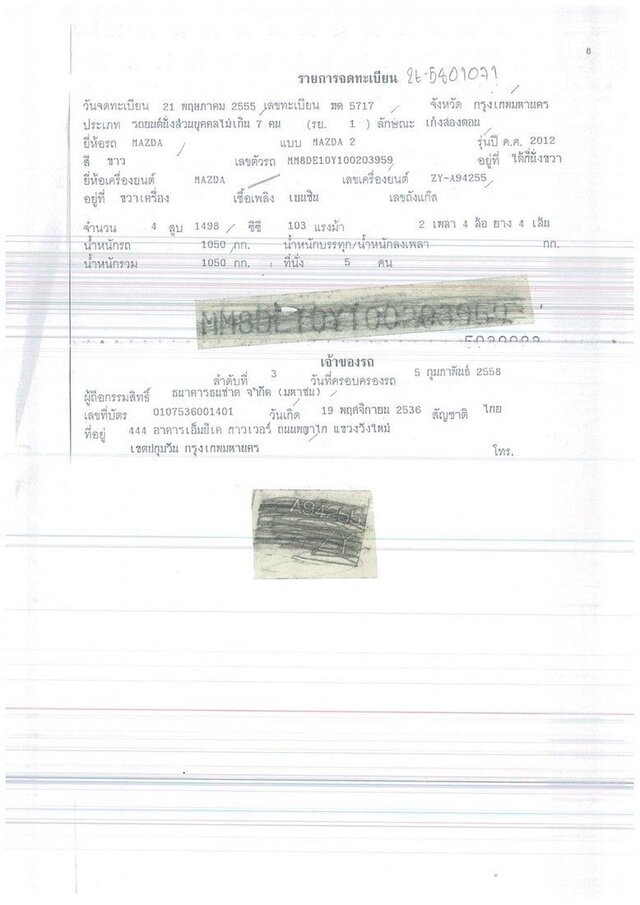 8
รายการจดทะเบียน
วันจดทะเบียน 21 พฤษภาคม 2555 เลขทะเบียน ฆต 5717 จังหวัด กรุงเทพมหานคร
ประเภท รถยนต์นั่งส่วนบุคคลไม่เกิน 7 คน (รย. 1 ) ลักษณะ เก๋งสองตอน
ยี่ห้อรถ MAZDA แบบ MAZDA 2 รุ่นปี ค.ศ. 2012
สี ขาว เลขตัวรถ MM8DE10Y100203959 อยู่ที่ ใต้ที่นั่งขวา
ยี่ห้อเครื่องยนต์ MAZDA เลขเครื่องยนต์ ZY-A94255
อยู่ที่ ขวาเครื่อง เชื้อเพลิง เบนซิน เลขถังแก๊ส
จำนวน 4 สูบ 1498 ซีซี 103 แรงม้า 2 เพลา 4 ล้อ ยาง 4 เส้น
น้ำหนักรถ 1050 กก. น้ำหนักบรรทุก/น้ำหนักลงเพลา กก.
น้ำหนักรวม 1050 กก. ที่นั่ง 5 คน
MM8DE10Y100203959
เจ้าของรถ
ลำดับที่ 3 วันที่ครอบครองรถ 5 กุมภาพันธ์ 2558
ผู้ถือกรรมสิทธิ์ ธนาคารธนชาต จำกัด (มหาชน)
เลขที่บัตร 0107536001401 วันเกิด 19 พฤศจิกายน 2536 สัญชาติ ไทย
ที่อยู่ 444 อาคารเอ็มบีเค ทาวเวอร์ ถนนพญาไท แขวงวังใหม่
เขตปทุมวัน กรุงเทพมหานคร โทร.
A94255
ZY